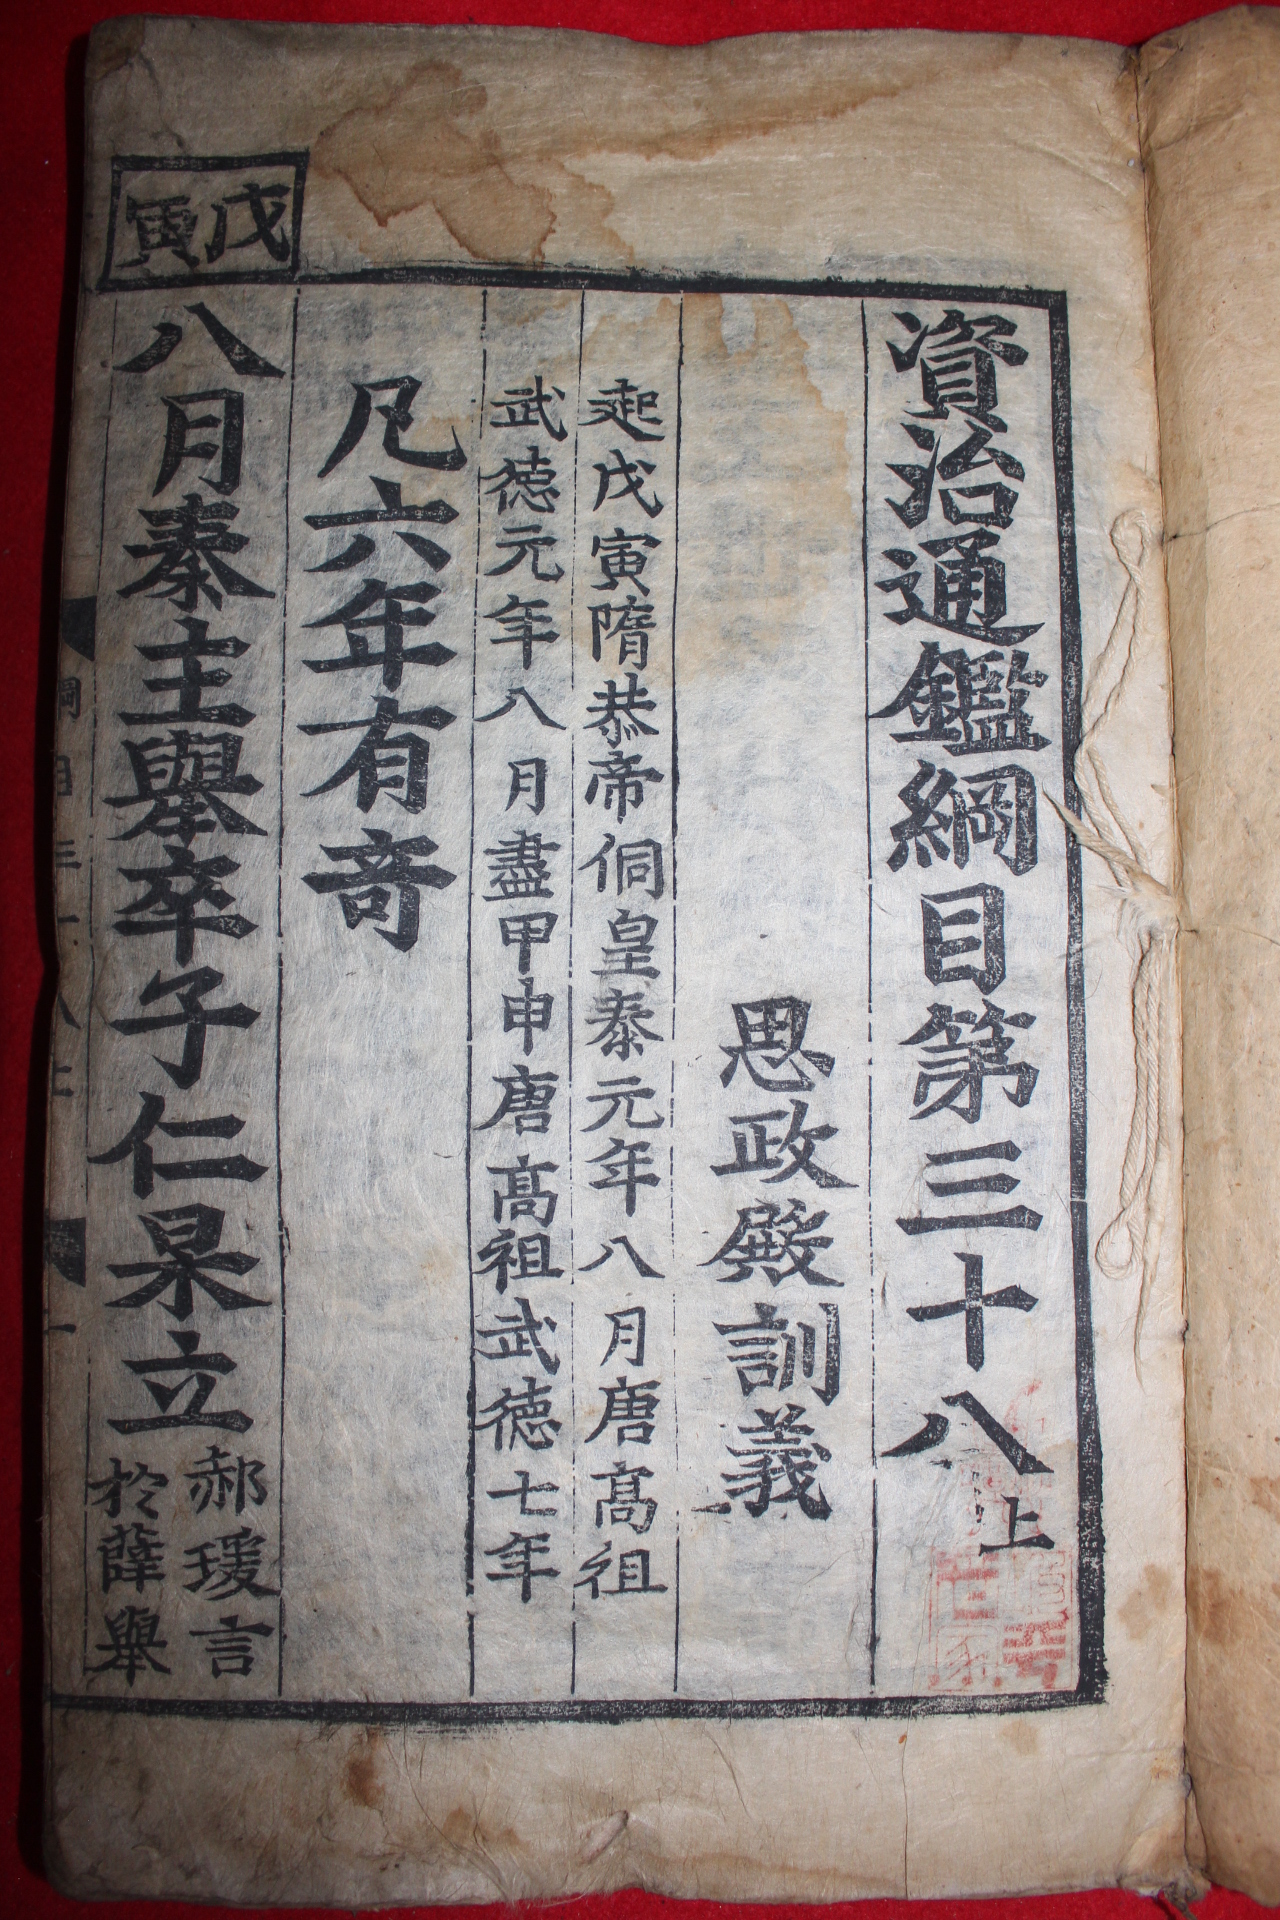 資治通鑑綱目第三十八上
思政殿訓義
起戊寅隋恭帝侗皇泰元年八月唐髙祖
武徳元年八月盡甲申唐髙祖武徳七年
凡六年有竒
戊寅
八月秦主舉卒子仁杲立
郝瑗言
於薛舉
綱目三十八上
一